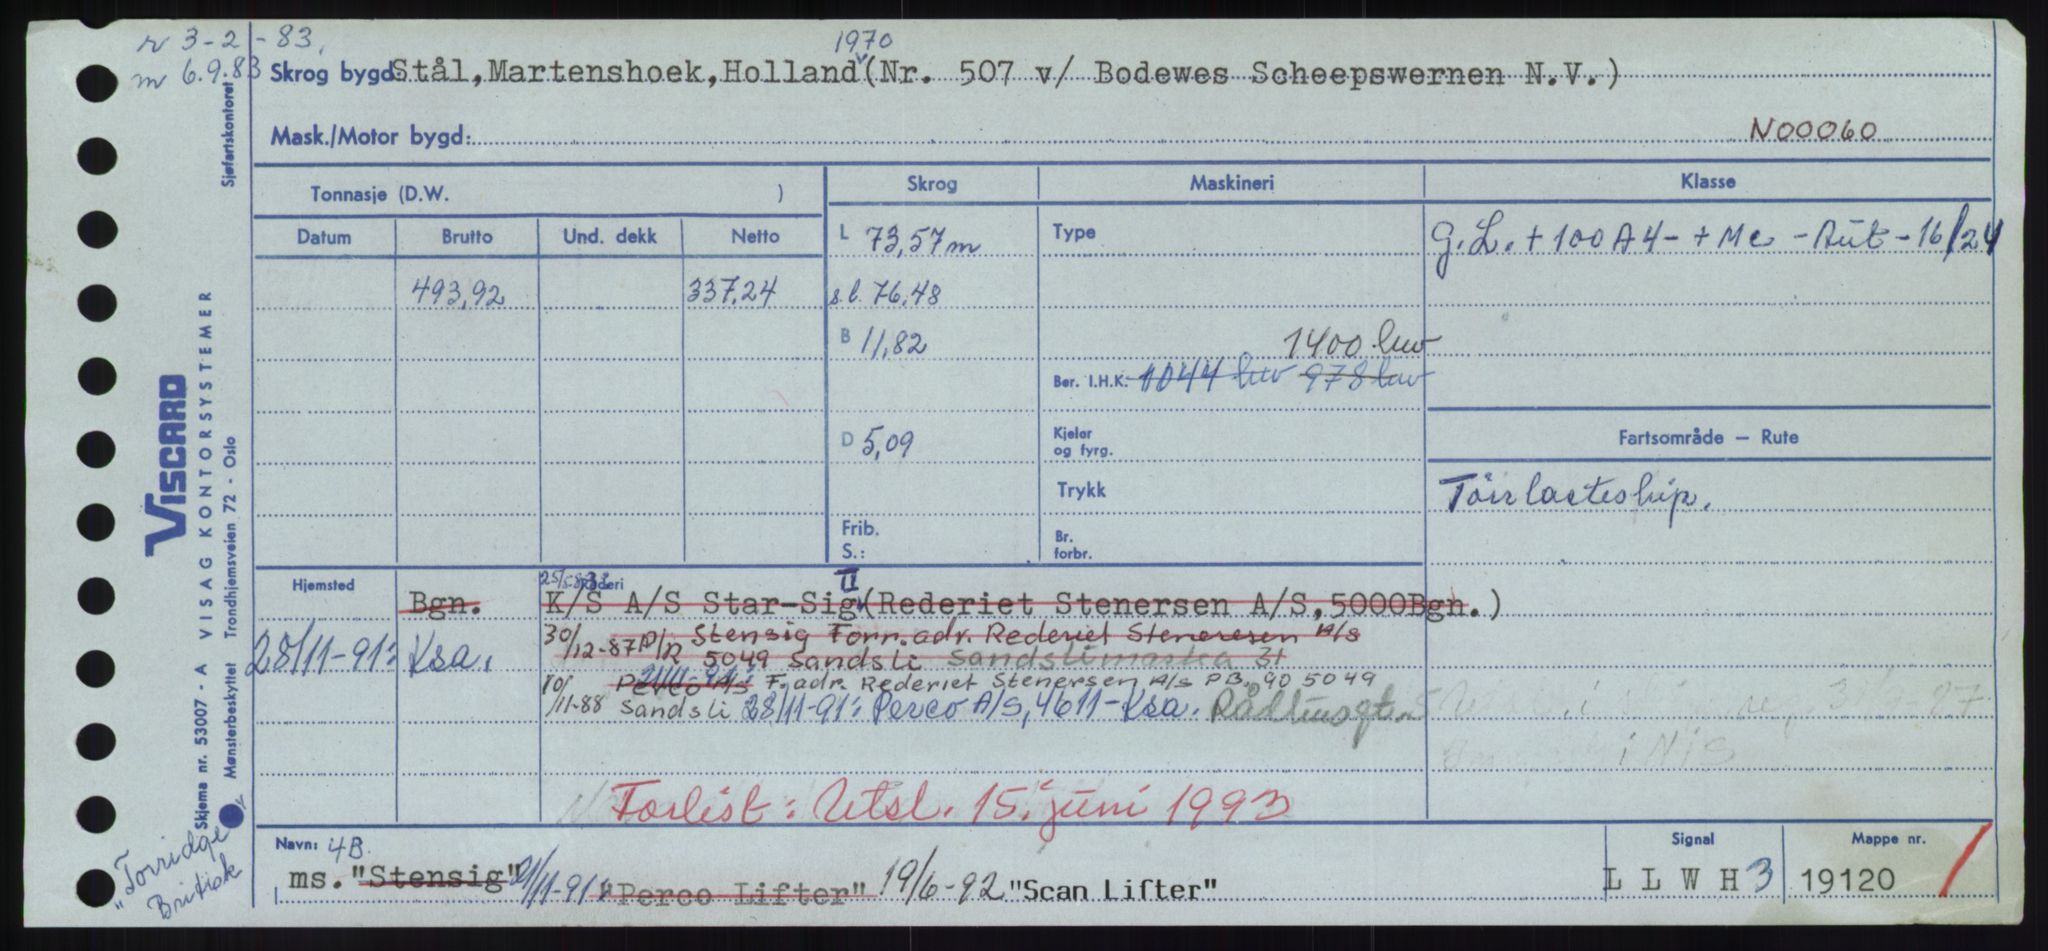 r 3-2-83.
m 6.9.83
1970
Skrog bygd: Stål, Martenshoek, Holland (Nr. 507 v/ Bodewes Scheepswernen N.V.)
Mask./Motor bygd: N00060
Tonnasje (D.W. )
Skrog Maskineri Klasse
Datum Brutto Und. dekk Netto
L 73,57 m
Type
G.L. + 100 A 4 - + Mc - Aut - 16/24
493,92 337,24
s.l. 76,48
B 11,82
1400 hw
Ber. I.H.K. 1044 hw 978 hw
D 5,09
Kjeler og fyrg.
Fartsområde — Rute
Trykk
Törrlasteskip.
Frib.
S.:
Br. forbr.
Hjemsted Rederi
II
Bgn. K/S A/S Star-Sig (Rederiet Stenersen A/S, 5000Bgn.)
30/12-87 P/R Stensig Forr.adr. Rederiet Stenersen A/S
28/11-91: Ksa. 5049 Sandsli Sandslimarka 31
10/11-88 Perco A/S F.adr. Rederiet Stenersen A/S P.B. 90 5049
Sandsli 28/11-91: Perco A/S, 4611-Ksa. Rådhusgt.
i NIS
Forlist: Utsl. 15. juni 1993
Navn: 4B
Signal
Mappe nr.
ms. "Stensig" 21/11-91: "Perco Lifter" 19/6-92 "Scan Lifter"
L L W H 3
19120
VISCARD
Skjema nr. 53007 - A VISAG KONTORSYSTEMER
Mønsterbeskyttet Trondhjemsveien 72 - Oslo
Sjøfartskontoret
"Torridge"
Britisk